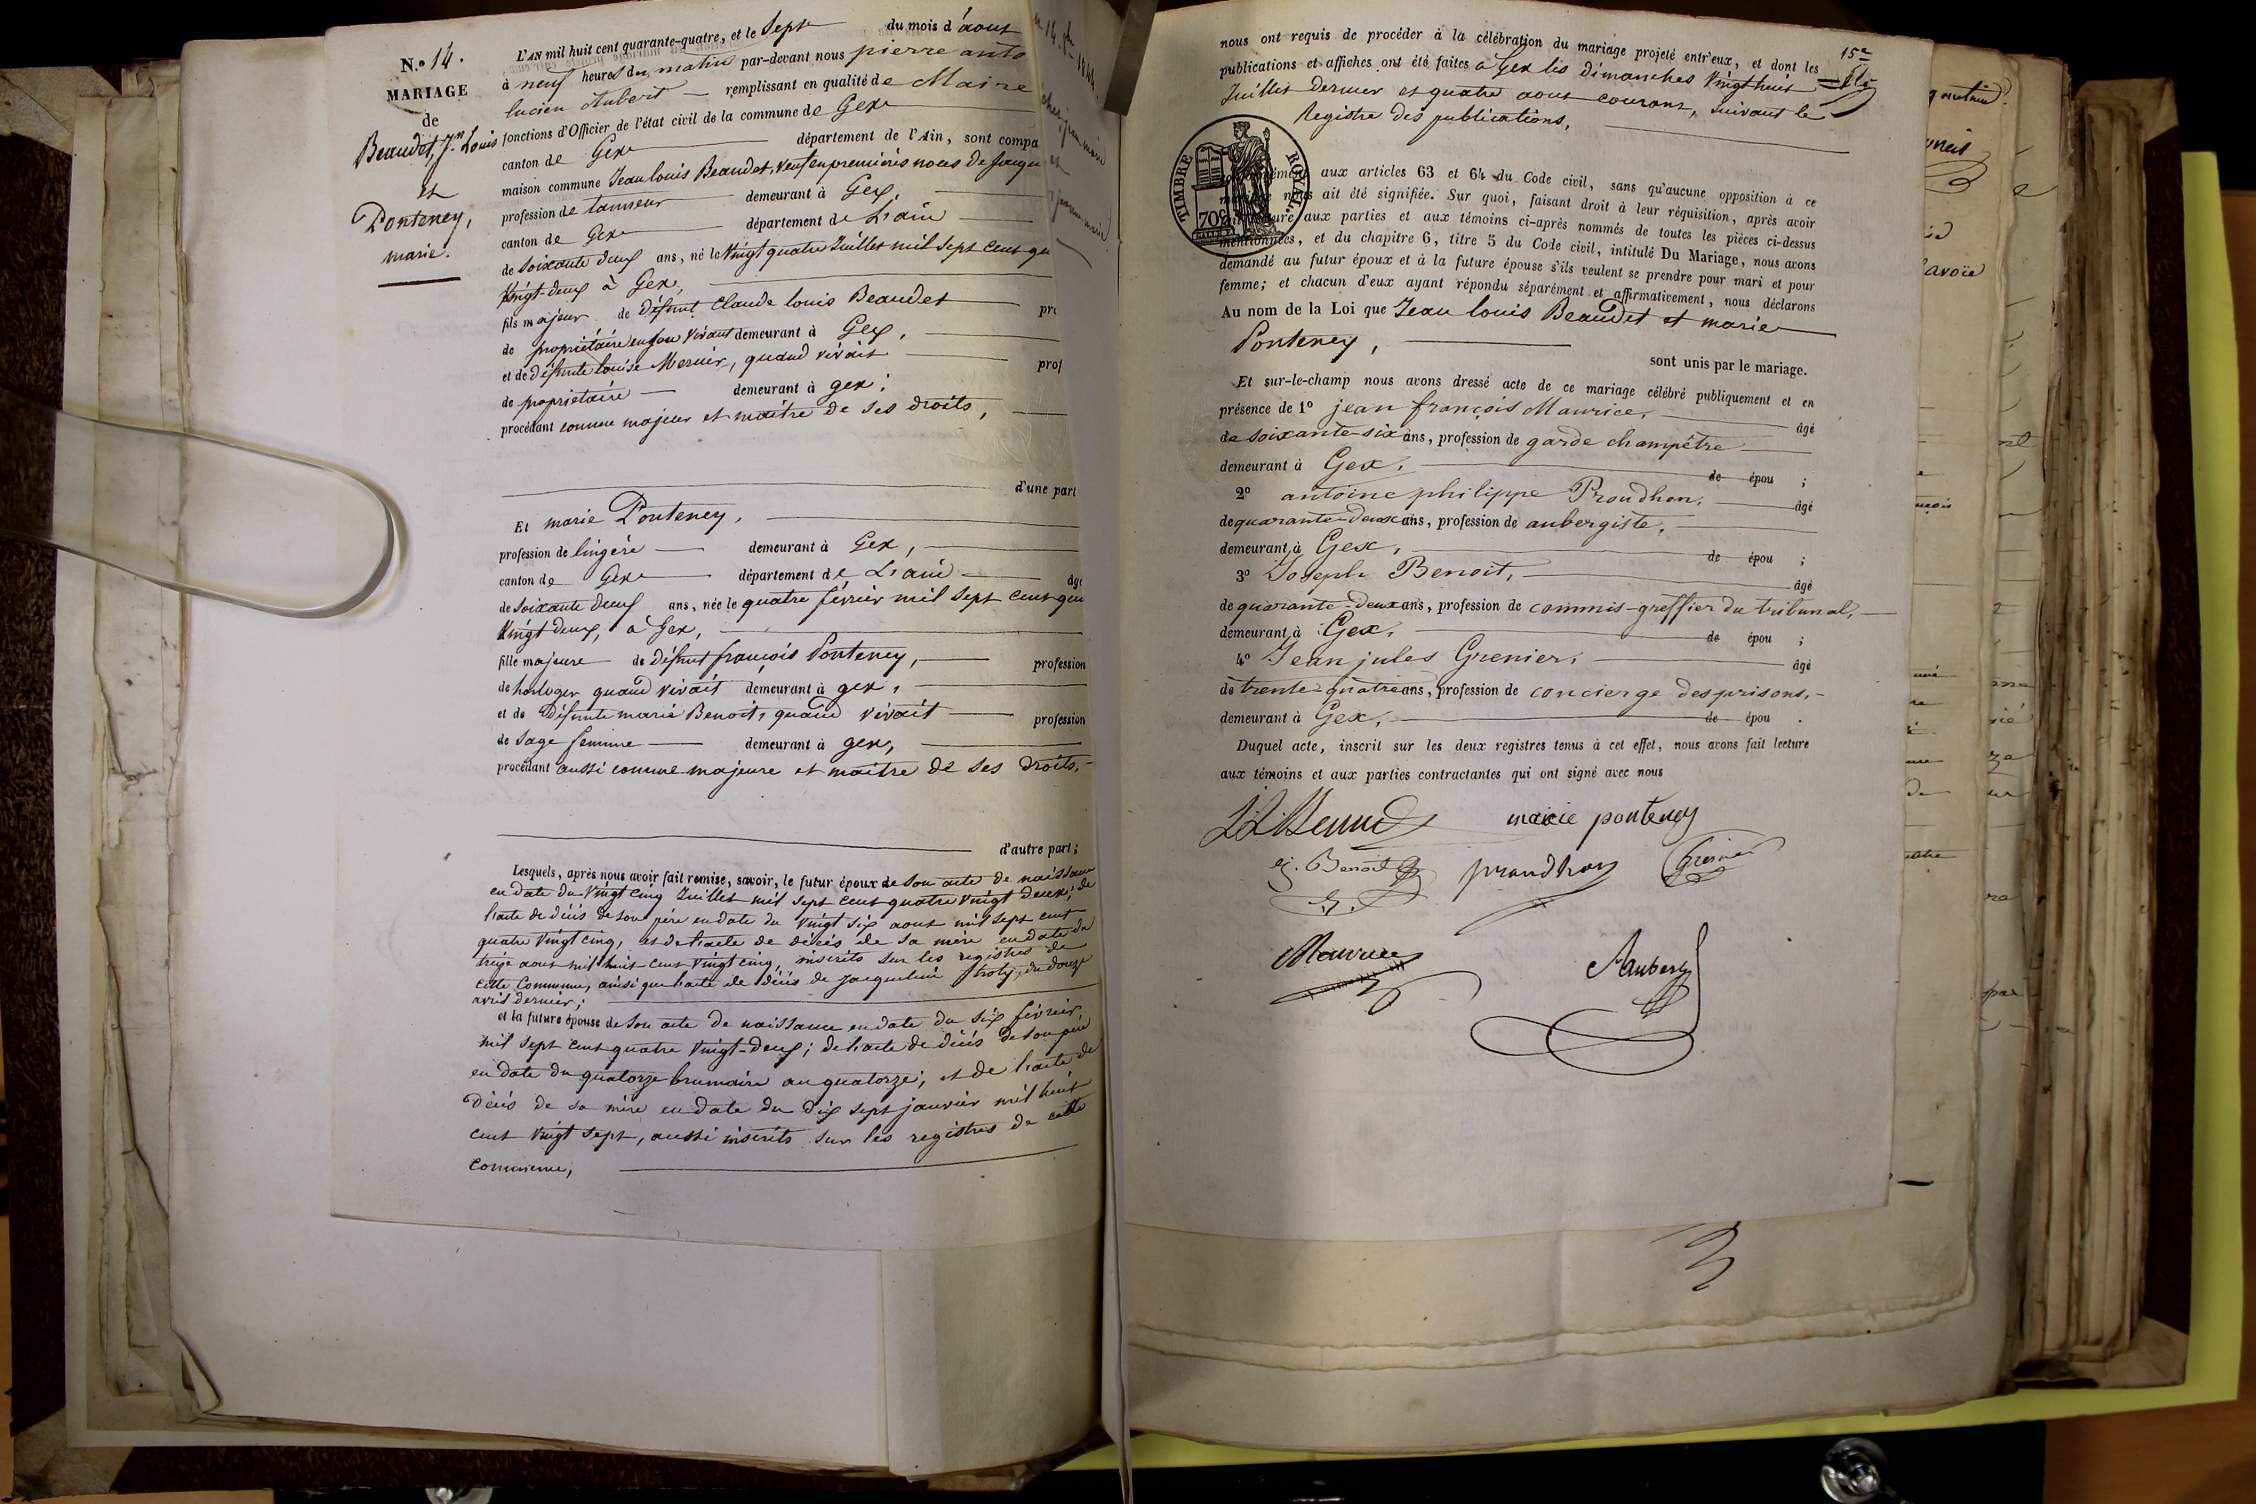 N.º 14.
MARIAGE
de
Beaudet, Jn Louis
et
Ponteney,
marie.
L'AN mil huit cent quarante-quatre, et le Sept du mois d'aout
à neuf heures du matin par-devant nous pierre anto
lucien Aubert remplissant en qualité de Maire
fonctions d'Officier de l'état civil de la commune de Gex
canton de Gex département de l'Ain, sont compa
maison commune Jean louis Beaudet, veuf en premières noces de Jacqu
profession de tanneur demeurant à Gex,
canton de Gex département de L'ain
de soixante deux ans, né le Vingt quatre Juillet mil sept cent qu
Vingt-deux à Gex,
fils majeur de défunt Claude louis Beaudet pro
de propriétaire en son vivant demeurant à Gex,
et de défunte louise Mercier, quand vivait prof
de propriétaire demeurant à gex;
procédant comme majeur et maître de ses droits,
d'une part
Et marie Ponteney,
profession de lingère demeurant à Gex,
canton de Gex département de L'ain âgé
de soixante deux ans, née le quatre février mil sept cent qua
Vingt deux, à Gex,
fille majeure de défunt françois Ponteney, profession
de horloger quand vivait demeurant à gex,
et de Défunte marie Benoit, quand vivait profession
de sage femme demeurant à gex,
procédant aussi comme majeure et maitre de ses droits,
d'autre part;
Lesquels, après nous avoir fait remise, savoir, le futur époux de son acte de naissance
en date du Vingt cinq Juillet mil sept cent quatre Vingt Deux; de
l'acte de décès de son père en date du Vingt six aout mil sept cent
quatre Vingt cinq, et de l'acte de décès de sa mère en date du
treize aout mil huit cent Vingt cinq, inscrits sur les registres de
cette Commune, ainsi que l'acte de décès de Jacqueline du douze
avril dernier;
et la future épouse de son acte de naissance en date du six février
mil sept cent quatre Vingt-deux; de l'acte de décès de son père
en date du quatorze brumaire an quatorze; et de l'acte de
Décès de sa mère en date du dix sept janvier mil huit
cent Vingt sept, aussi inscrits sur les registres de cette
commune;
15e
nous ont requis de procéder à la célébration du mariage projeté entr'eux, et dont les
publications et affiches ont été faites à Gex les dimanches Vingt huit
Juillet dernier et quatre aout courant, suivant le
Registre des publications,
TIMBRE ROYAL
70c
aux articles 63 et 64 du Code civil, sans qu'aucune opposition à ce
mariage nous ait été signifiée. Sur quoi, faisant droit à leur réquisition, après avoir
aux parties et aux témoins ci-après nommés de toutes les pièces ci-dessus
mentionnées, et du chapitre 6, titre 5 du Code civil, intitulé Du Mariage, nous avons
demandé au futur époux et à la future épouse s'ils veulent se prendre pour mari et pour
femme; et chacun d'eux ayant répondu séparément et affirmativement, nous déclarons
Au nom de la Loi que Jean louis Beaudet et marie
Ponteney,
sont unis par le mariage.
Et sur-le-champ nous avons dressé acte de ce mariage célébré publiquement et en
présence de 1º jean françois Maurice, âgé
de soixante-six ans, profession de garde champêtre
demeurant à Gex, de épou ;
2º antoine philippe Proudhon, âgé
de quarante-deux ans, profession de aubergiste,
demeurant à Gex, de épou ;
3º Joseph Benoit, âgé
de quarante-deux ans, profession de commis-greffier du tribunal,
demeurant à Gex, de épou ;
4º Jean jules Grenier, âgé
de trente-quatre ans, profession de concierge des prisons,
demeurant à Gex, de épou .
Duquel acte, inscrit sur les deux registres tenus à cet effet, nous avons fait lecture
aux témoins et aux parties contractantes qui ont signé avec nous
marie ponteney
ej. Benoit proudhon Grenier
Maurice
Aubert